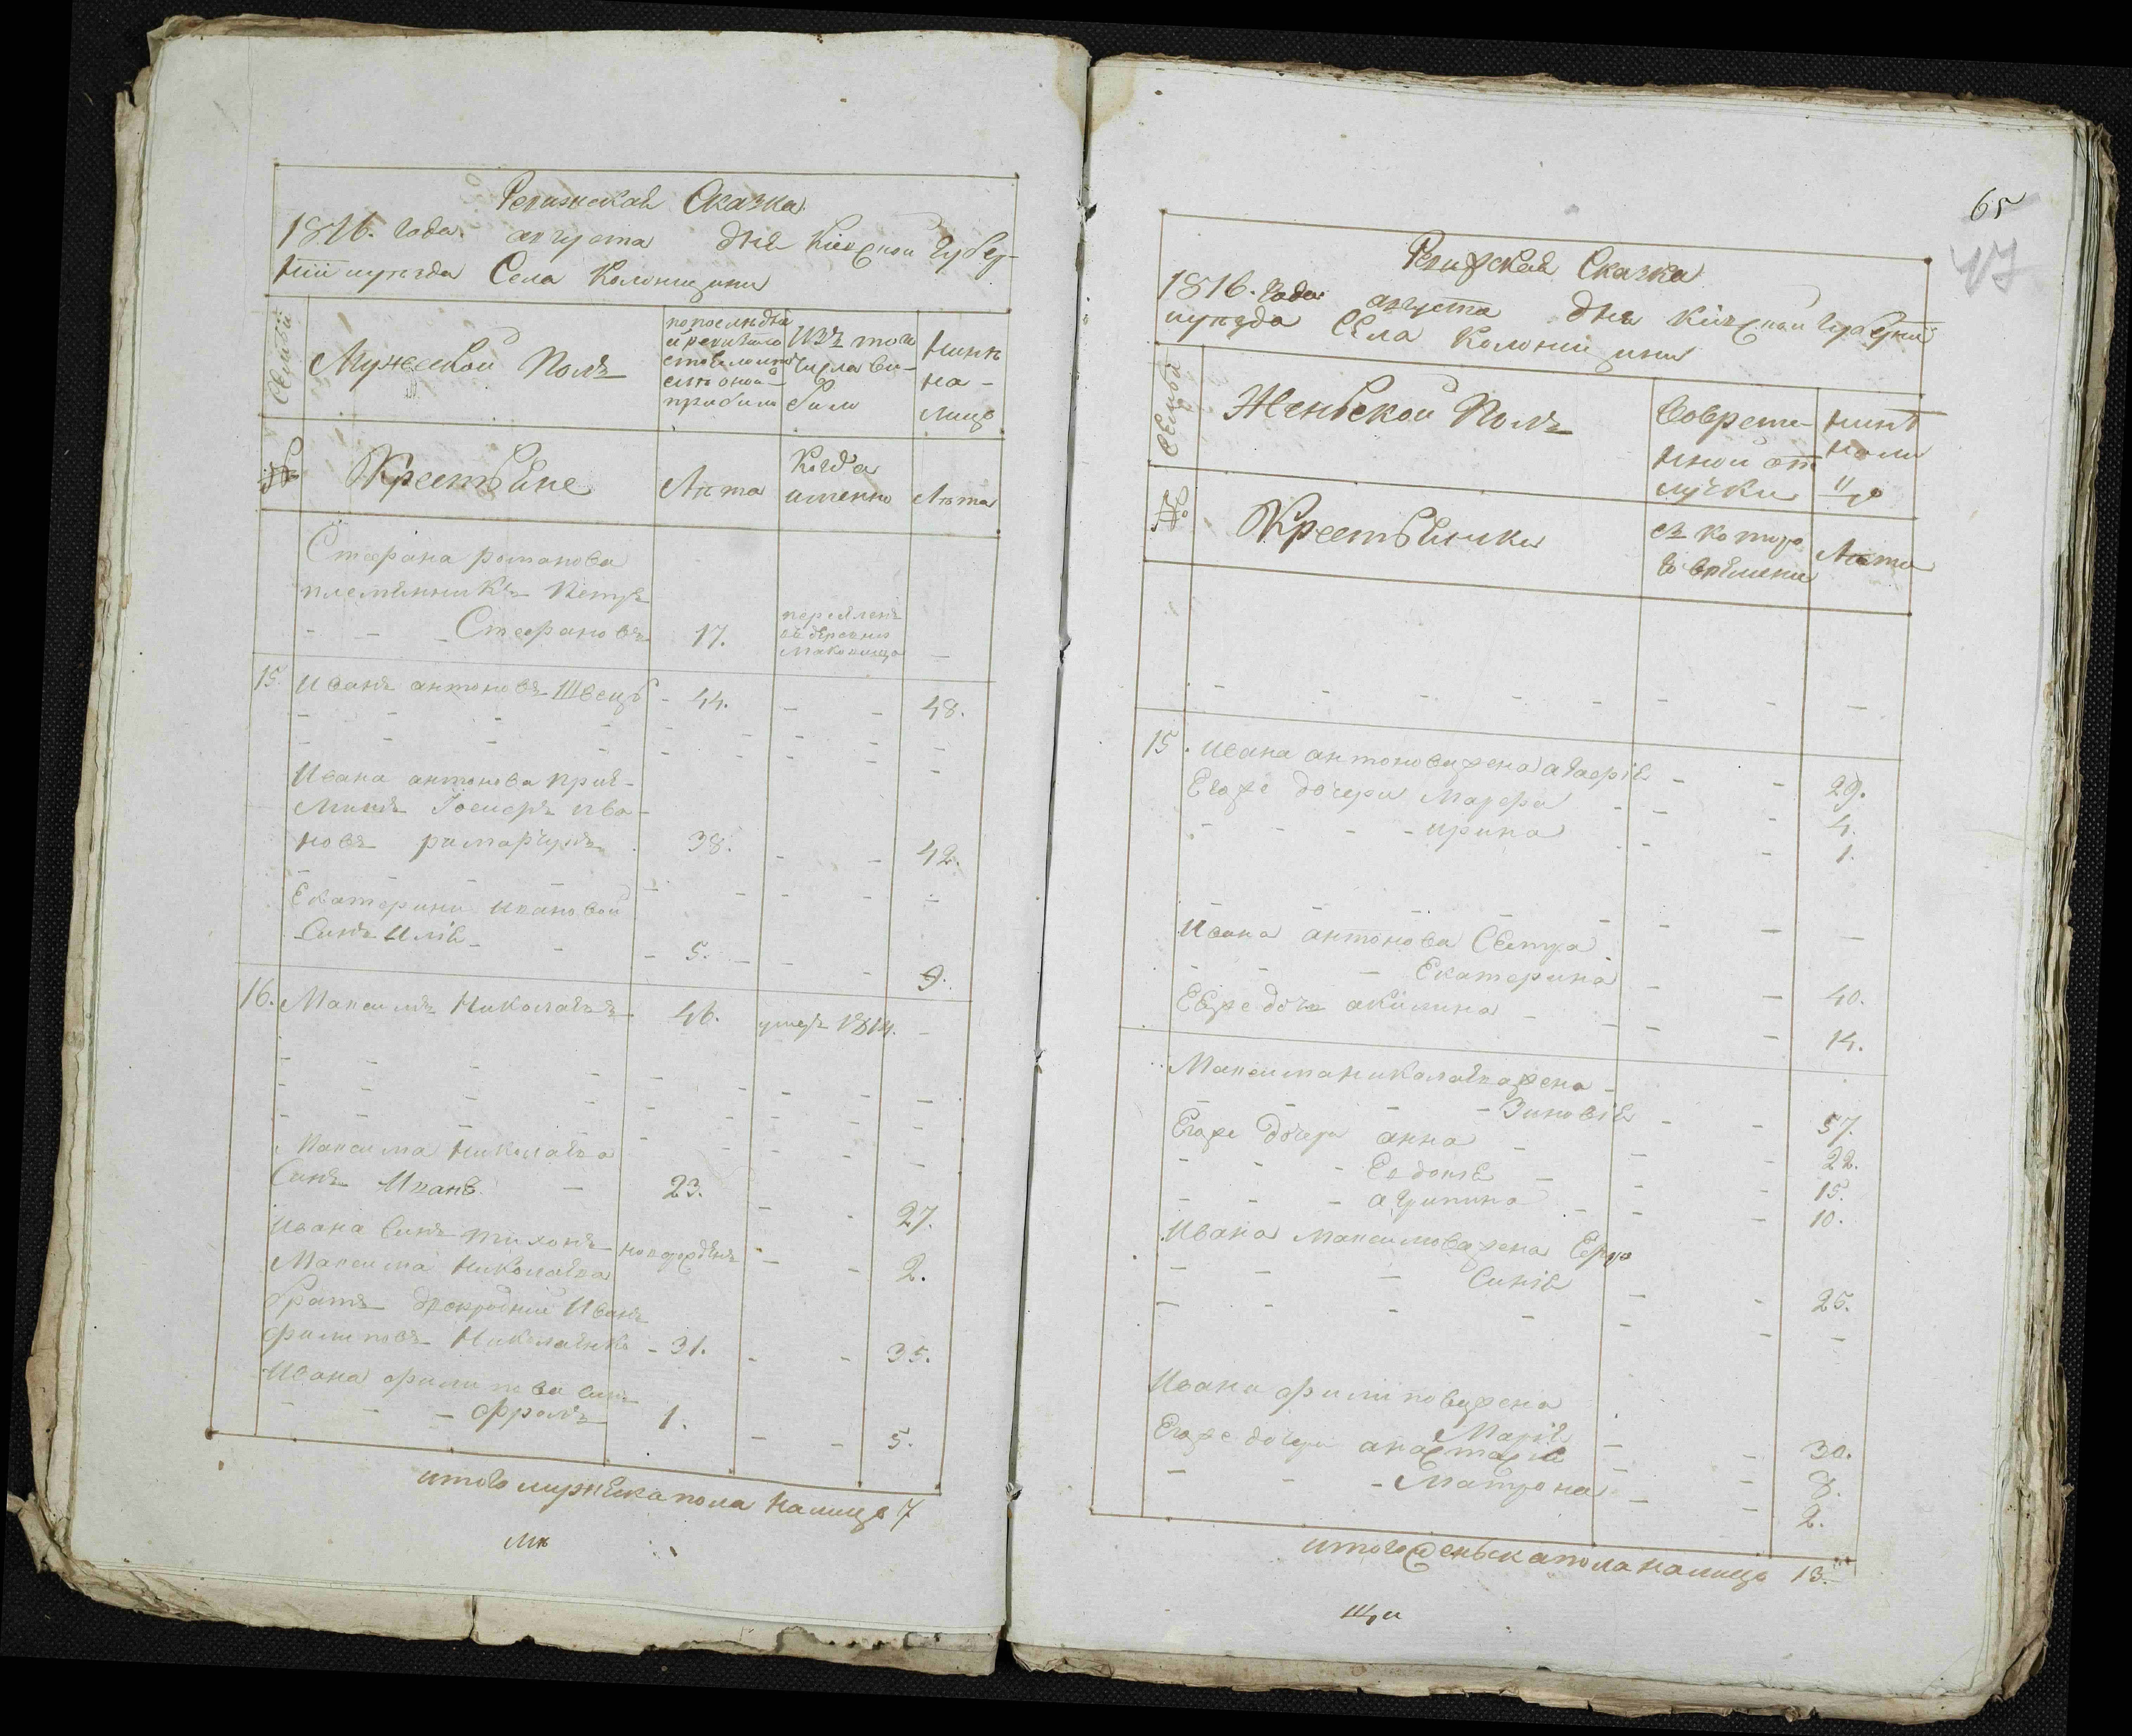 Ревизская Сказка
1816. года. августа дня Кіевской губер-
ніи и уезда Села Колонщини
Семьи
Мужеской Полъ
по последней ревизии состояло и после оной прибыло
Изъ того числа выбыло
Нынѣ на-лицо
№
Крестьяне
Лѣта
Когда именно
Лѣта
Стефана романова
племянникъ Петръ
- - - Стефановъ 17. переселенъ въ деревню Маковище -
15 Иванъ антоновъ Швець - 44. - - 48.
Ивана антонова прий-
мишъ Іосифъ Ива-
новъ римарчукъ 38. - - 42.
Екатерини ивановой
Синъ Илія - - 5. - - 9.
16. Максимъ Николаевъ 46. умеръ 1814. -
Максима Николаева
Синъ Иванъ - 23. - - 27.
Ивана Синъ тихонъ новорожденъ - - 2.
Максима Николаева
братъ двоюродний Иванъ
филиповъ Николаенко - 31. - - 35.
Ивана филипова синъ
- - - фролъ 1. - - 5.
итого мужеска пола налицо 7
65
47
Ревизская Сказка
1816. года августа дня Кіевской губерніи
и уезда Села Колонщини
Семьи
Женьской Полъ
Во времен-ной отлучки
Нинѣ нали-цо
№
Крестьянки
съ которо-го времени
Лѣта
15. Ивана антонова жена агафія - - 29.
Егоже дочери Марфа - - 4.
- - - - ирина - - 1.
Ивана антонова Сестра
- - - Екатерина - - 40.
Ея же дочь акилина - - - 14.
Максима николаева жена -
- - - - Зиновія - - 57.
Егоже дочери анна - - - 22.
- - - Евдокія - - - 15.
- - - агрипина - - - 10.
Ивана Максимова жена Ефро
- - - Синія - - 25.
Ивана филипова жена
Марія - - 30.
Егоже дочери анастасія - - 8.
- - - Матрона - - 2.
итого женьска пола налицо 13.